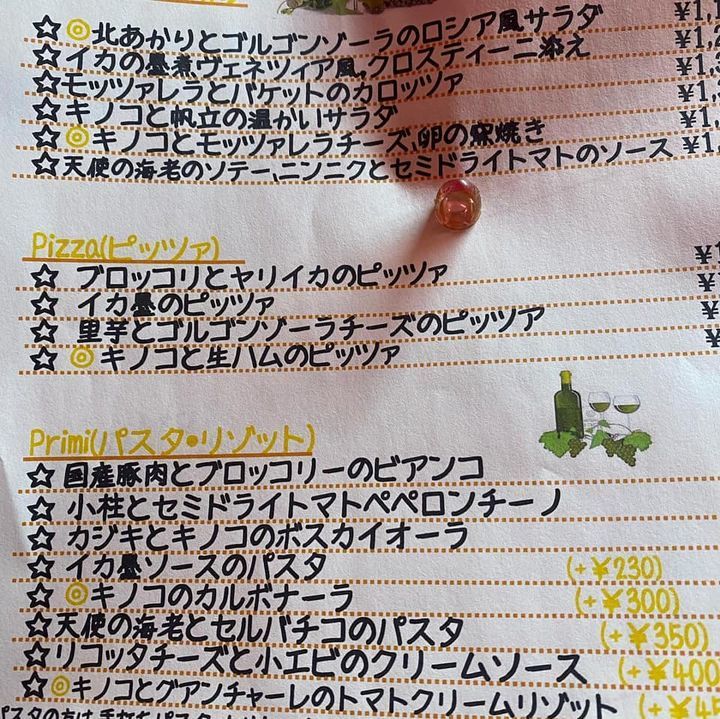 ☆◎北あかりとゴルゴンゾーラのロシア風サラダ ¥1,
☆イカの墨煮ヴェネツィア風,クロスティーニ添え ¥1,
☆モッツァレラとバケットのカロッツァ ¥1,
☆キノコと帆立の温かいサラダ ¥1,
☆◎キノコとモッツァレラチーズ、卵の窯焼き ¥1,
☆天使の海老のソテー、ニンニクとセミドライトマトのソース ¥1,
Pizza(ピッツァ)
☆ ブロッコリとヤリイカのピッツァ ¥1
☆ イカ墨のピッツァ ¥
☆ 里芋とゴルゴンゾーラチーズのピッツア ¥
☆◎キノコと生ハムのピッツァ ¥
Primi(パスタ•リゾット)
☆ 国産豚肉とブロッコリーのビアンコ
☆ 小柱とセミドライトマトペペロンチーノ
☆ カジキとキノコのボスカイオーラ
☆ イカ墨ソースのパスタ (+¥230)
☆ ◎キノコのカルボナーラ (+¥300)
☆天使の海老とセルバチコのパスタ (+¥350)
☆リコッタチーズと小エビのクリームソース (+¥400
☆◎キノコとグアンチャーレのトマトクリームリゾット (+¥4